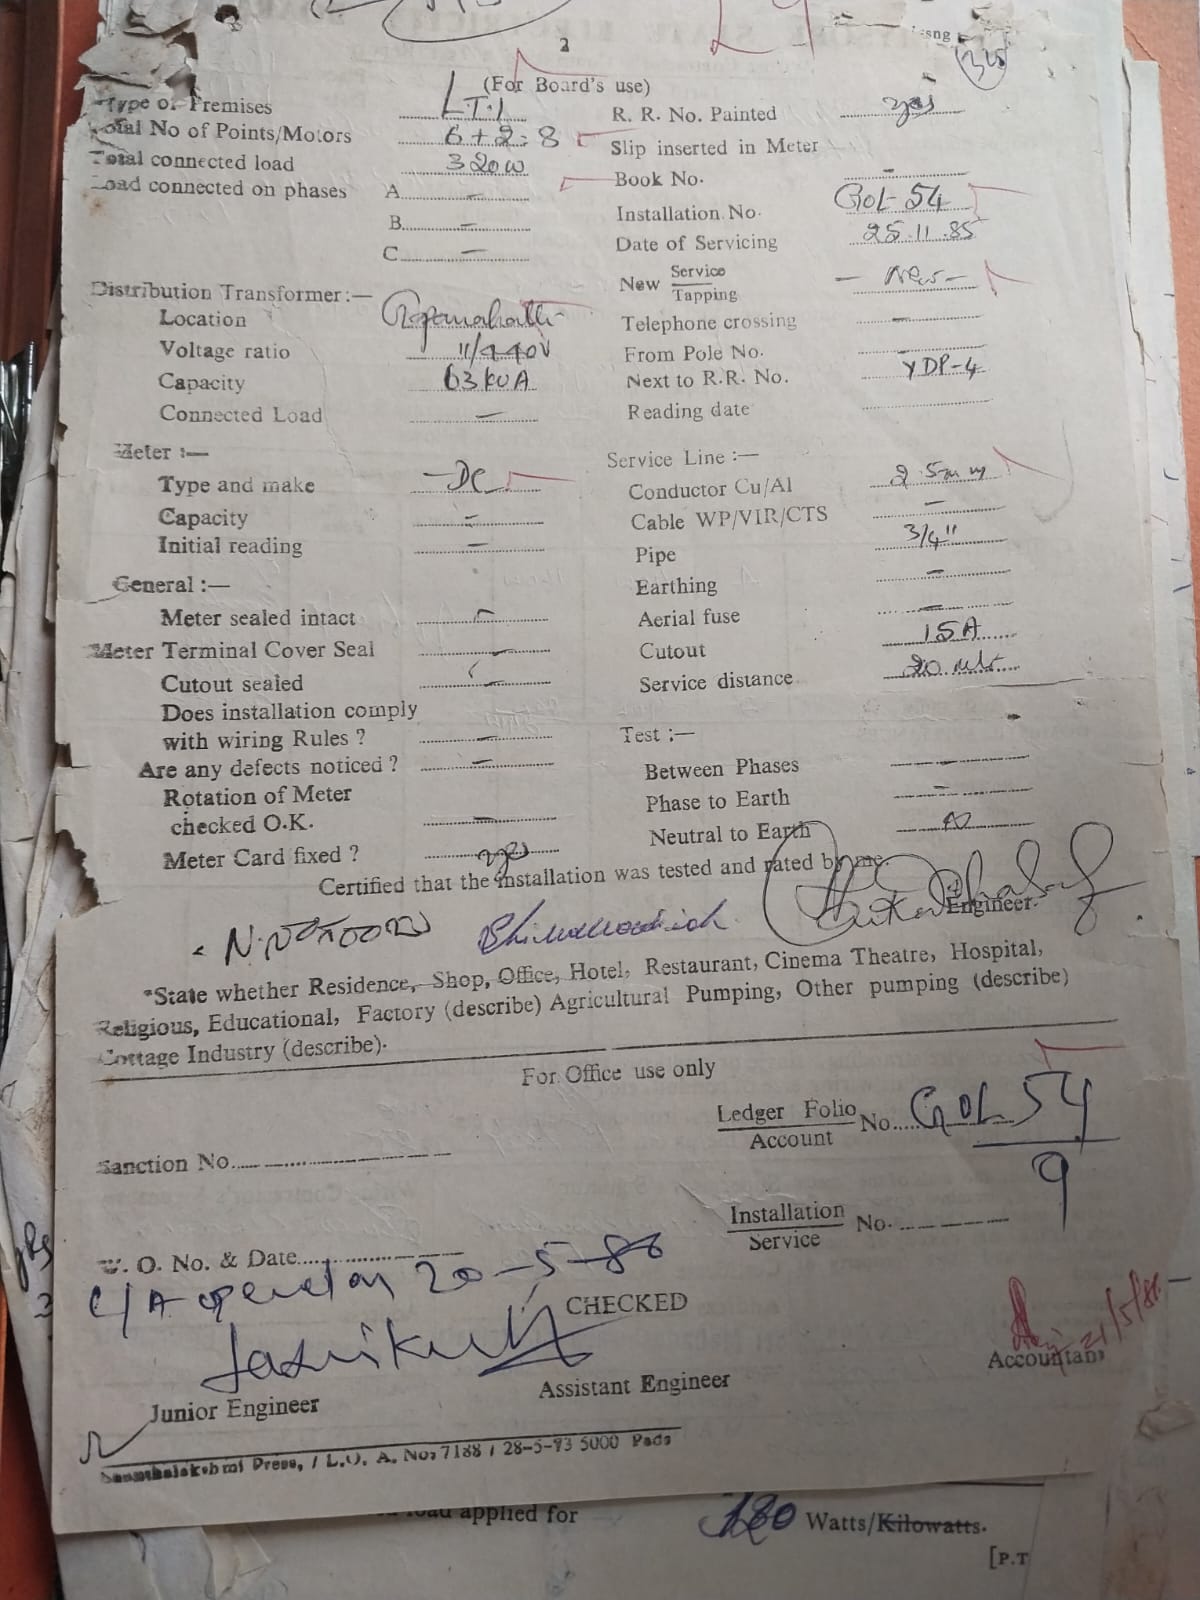 2
(For Board's use)
Type of Premises LT.1 R. R. No. Painted yes
Total No of Points/Motors 6+2=8 Slip inserted in Meter
Total connected load 320W Book No. -
Load connected on phases A - Installation No. GOL-54
B - Date of Servicing 25.11.85
C - New Service/Tapping - New -
Distribution Transformer:— Telephone crossing -
Location From Pole No. -
Voltage ratio 11/440V Next to R.R. No. YDP-4
Capacity 63 KVA Reading date
Connected Load -
Meter :— Service Line :—
Type and make -DC Conductor Cu/Al 2.5mm
Capacity - Cable WP/VIR/CTS -
Initial reading - Pipe 3/4"
General :— Earthing -
Meter sealed intact - Aerial fuse -
Meter Terminal Cover Seal - Cutout 15A
Cutout sealed - Service distance 20 mtr
Does installation comply
with wiring Rules ? - Test :—
Are any defects noticed ? - Between Phases -
Rotation of Meter Phase to Earth -
checked O.K. - Neutral to Earth
Meter Card fixed ? yes
Certified that the installation was tested and rated by me.
Engineer.
*State whether Residence, Shop, Office, Hotel, Restaurant, Cinema Theatre, Hospital,
Religious, Educational, Factory (describe) Agricultural Pumping, Other pumping (describe)
Cottage Industry (describe).
For Office use only
Ledger Folio/Account No. GOL 54/9
Sanction No.
Installation/Service No.
W. O. No. & Date
C/A opened on 20-5-86
CHECKED
21/5/86
Accountant
Assistant Engineer
Junior Engineer
Press, / L.O. A. No: 7188 / 28-5-73 5000 Pads
load applied for 180 Watts/Kilowatts.
[P.T